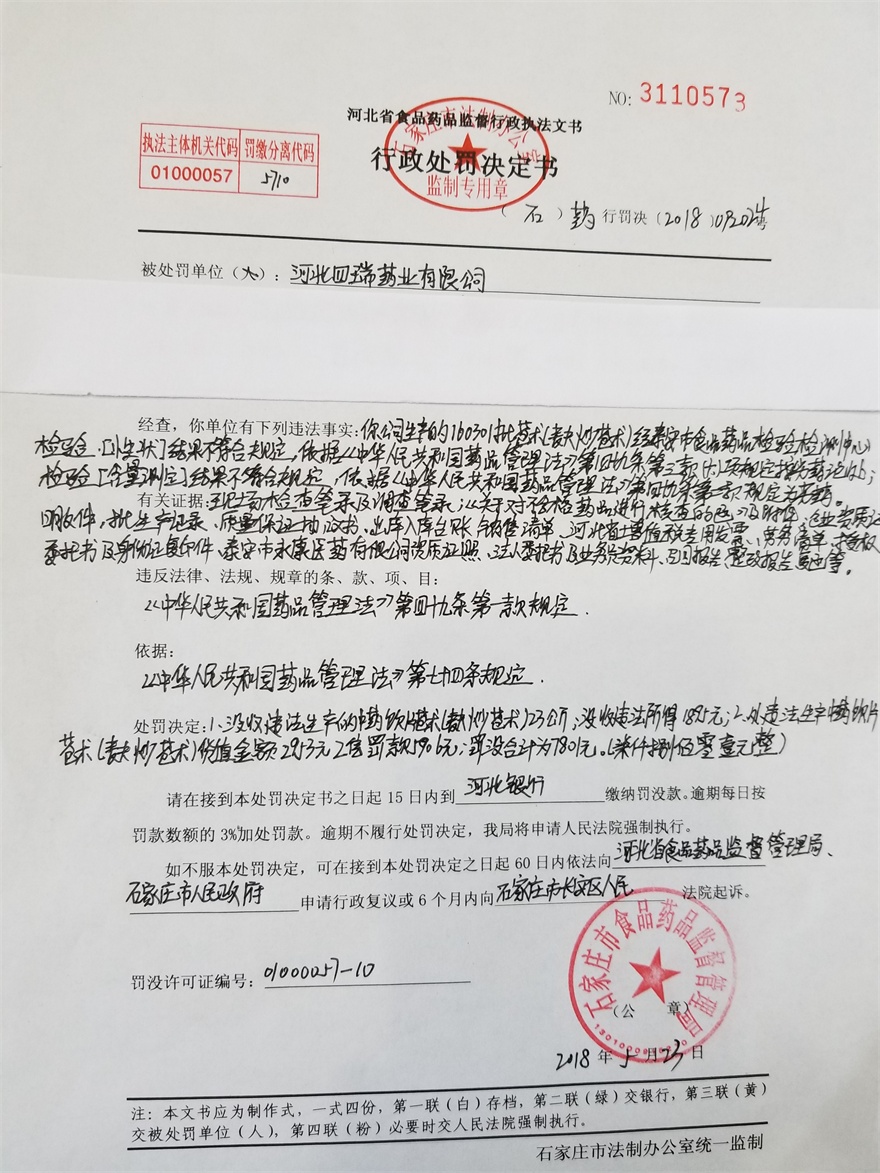 NO: 3110573
河北省食品药品监督行政执法文书
行政处罚决定书
石家庄市法制办公室
监制专用章
执法主体机关代码 罚缴分离代码
01000057 5710
(石)药行罚决(2018)092024号
被处罚单位(人):河北四瑞药业有限公司
经查,你单位有下列违法事实:你公司生产的160301批苍术(麸炒苍术)经泰安市食品药品检验检测中心
检验,[性状]结果不符合规定,依据《中华人民共和国药品管理法》第四十九条第三款(六)项规定按劣药论处;
检验[含量测定]结果不符合规定,依据《中华人民共和国药品管理法》第四十九条第一款规定为劣药。
有关证据:现场检查笔录及调查笔录、《关于对不合格药品进行核查的函》及附件、企业资质证
明文件、批生产记录、质量保证协议书、出库入库台账、销售清单、河北省增值税专用发票、劳务清单、授权
委托书及身份证复印件、泰安市永康医药有限公司资质证照、法人委托书及业务员资料、召回报告、整改报告等。
违反法律、法规、规章的条、款、项、目:
《中华人民共和国药品管理法》第四十九条第一款规定.
依据:
《中华人民共和国药品管理法》第七十四条规定.
处罚决定:1、没收违法生产的中药饮片苍术(麸炒苍术)23公斤;没收违法所得1895元;2、处违法生产中药饮片
苍术(麸炒苍术)货值金额2953元2倍罚款5906元;罚没合计为7801元。(柒仟捌佰零壹元整)
请在接到本处罚决定书之日起 15 日内到河北银行缴纳罚没款。逾期每日按
罚款数额的 3%加处罚款。逾期不履行处罚决定,我局将申请人民法院强制执行。
如不服本处罚决定,可在接到本处罚决定之日起 60 日内依法向河北省食品药品监督管理局、
石家庄市人民政府申请行政复议或 6 个月内向石家庄市长安区人民法院起诉。
罚没许可证编号:01000057-10
石家庄市食品药品监督管理局
(公 章)
2018年5月23日
注:本文书应为制作式,一式四份,第一联(白)存档,第二联(绿)交银行,第三联(黄)
交被处罚单位(人),第四联(粉)必要时交人民法院强制执行。
石家庄市法制办公室统一监制